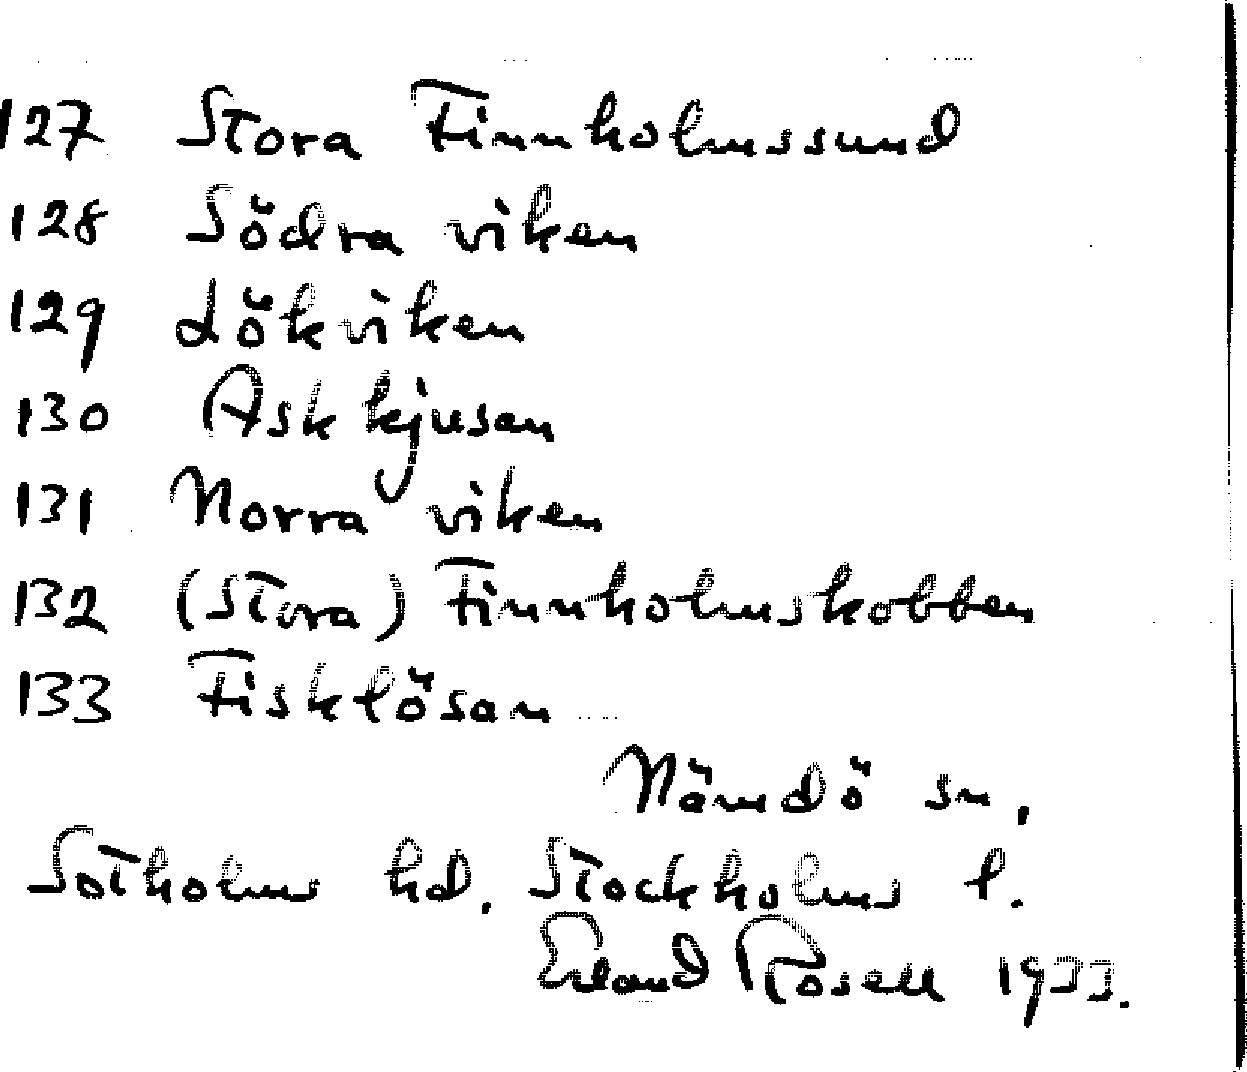 127 Stora Finnholmssund
128 Södra viken
129 Lökviken
130 Askkjusan
131 Norra viken
132 (Stora) Finnholmskobben
133 Fisklösan
Nämdö sn.
Sotholms hd. Stockholms l.
Erland Rosell 1933.